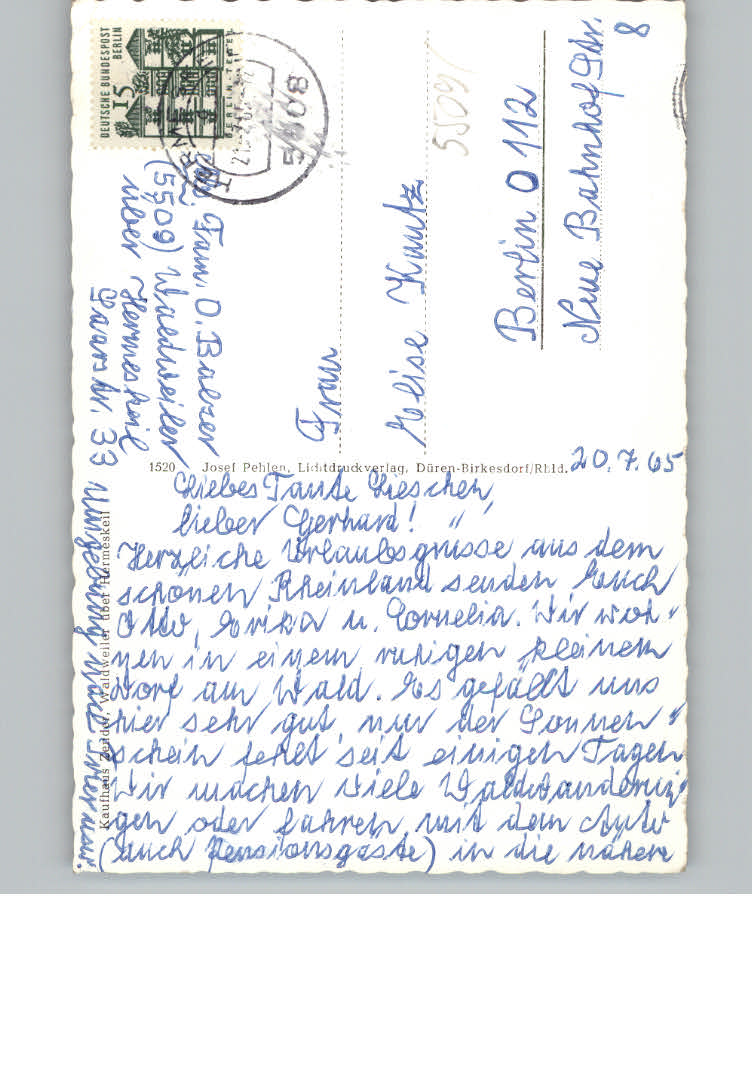 DEUTSCHE BUNDESPOST
BERLIN
15
5508
5509
Fam. O. Balzer
(5509) Waldweiler
über Hermeskeil
Saarstr. 33
Frau
Elise Kautz
Berlin O 112
Neue Bahnhof Str.
8
1520 Josef Pehlen, Lichtdruckverlag, Düren-Birkesdorf/Rhld.
Kaufhaus Zender, Waldweiler über Hermeskeil
20.7.65
Liebes Tante Lieschen,
lieber Gerhard!
Herzliche Urlaubsgrüsse aus dem
schönen Rheinland senden Euch
Otto, Erika u. Cornelia. Wir woh-
nen in einem ruhigen kleinem
Dorf am Wald. Es gefällt uns
hier sehr gut, nur der Sonnen-
schein fehlt seit einigen Tagen
Wir machen viele Waldwanderun-
gen oder fahren mit dem Auto
(auch Pensionsgäste) in die nähere
Umgebung